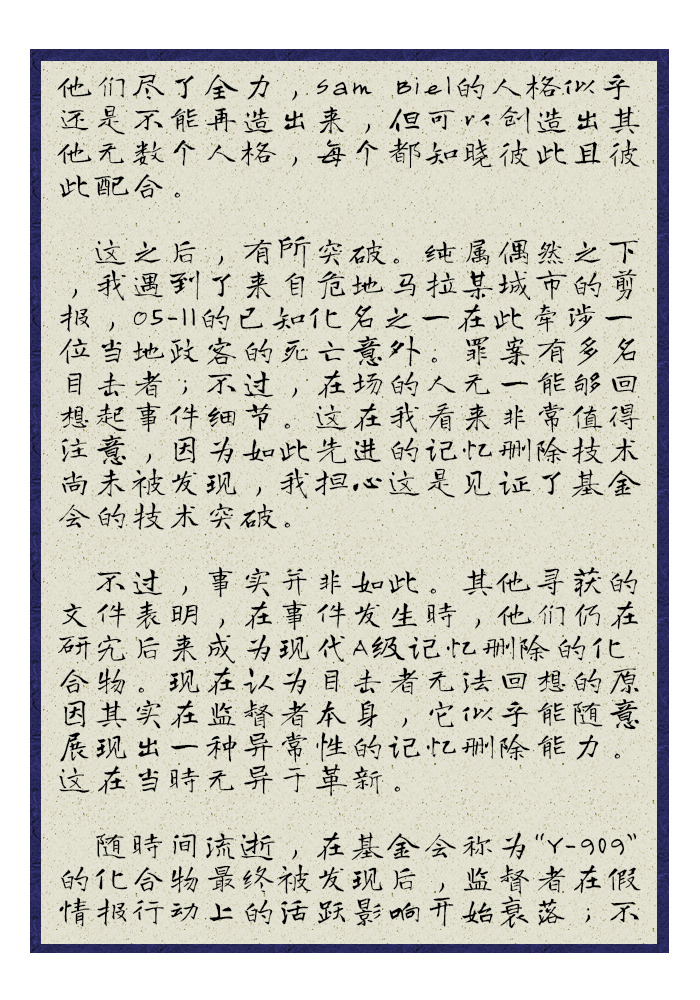 他们尽了全力，Sam Biel的人格似乎
还是不能再造出来，但可以创造出其
他无数个人格，每个都知晓彼此且彼
此配合。
这之后，有所突破。纯属偶然之下
，我遇到了来自危地马拉某城市的剪
报，05-11的已知化名之一在此牵涉一
位当地政客的死亡意外。罪案有多名
目击者；不过，在场的人无一能够回
想起事件细节。这在我看来非常值得
注意，因为如此先进的记忆删除技术
尚未被发现，我担心这是见证了基金
会的技术突破。
不过，事实并非如此。其他寻获的
文件表明，在事件发生時，他们仍在
研究后来成为现代A级记忆删除的化
合物。现在认为目击者无法回想的原
因其实在监督者本身，它似乎能随意
展现出一种异常性的记忆删除能力。
这在当時无异于革新。
随時间流逝，在基金会称为“Y-909”
的化合物最终被发现后，监督者在假
情报行动上的活跃影响开始衰落；不